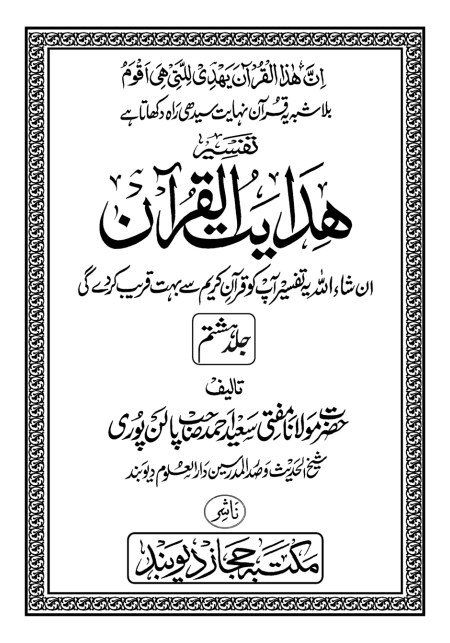 اِنَّ هٰذَا الْقُرْآنَ یَهْدِیْ لِلَّتِیْ هِیَ اَقْوَمُ
بلاشبہ یہ قرآن نہایت سیدھی راہ دکھاتا ہے
تفسیر
ھدایت القرآن
ان شاء اللہ یہ تفسیر آپ کو قرآنِ کریم سے بہت قریب کردے گی
جلد ہشتم
تالیف
حضرت مولانا مفتی سعید احمد صاحب پالن پوری
شیخ الحدیث و صدر المدرسین دارالعلوم دیوبند
ناشر
مکتبہ حجاز دیوبند